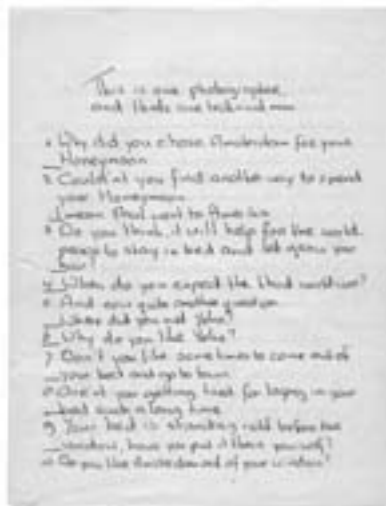 This is our photographer,
and thats our technical man
1 Why did you chose Amsterdam for your
Honeymoon
2 Couldn't you find another way to spend
your Honeymoon
I mean
3 Do you think it will help for the world
peace to stay in bed and let grow your
hair?
4 When do you expect the third world war?
5 And now quite another question
Where did you met Yoko?
6 Why do you like Yoko?
7 Don't you like sometimes to come out of
your bed and go to town
8 Aren't you getting tired for laying in your
bed such a long time
9 Your bed is standing right before the
window, have you put it there yourself?
10 Do you like Amsterdam out of your window?